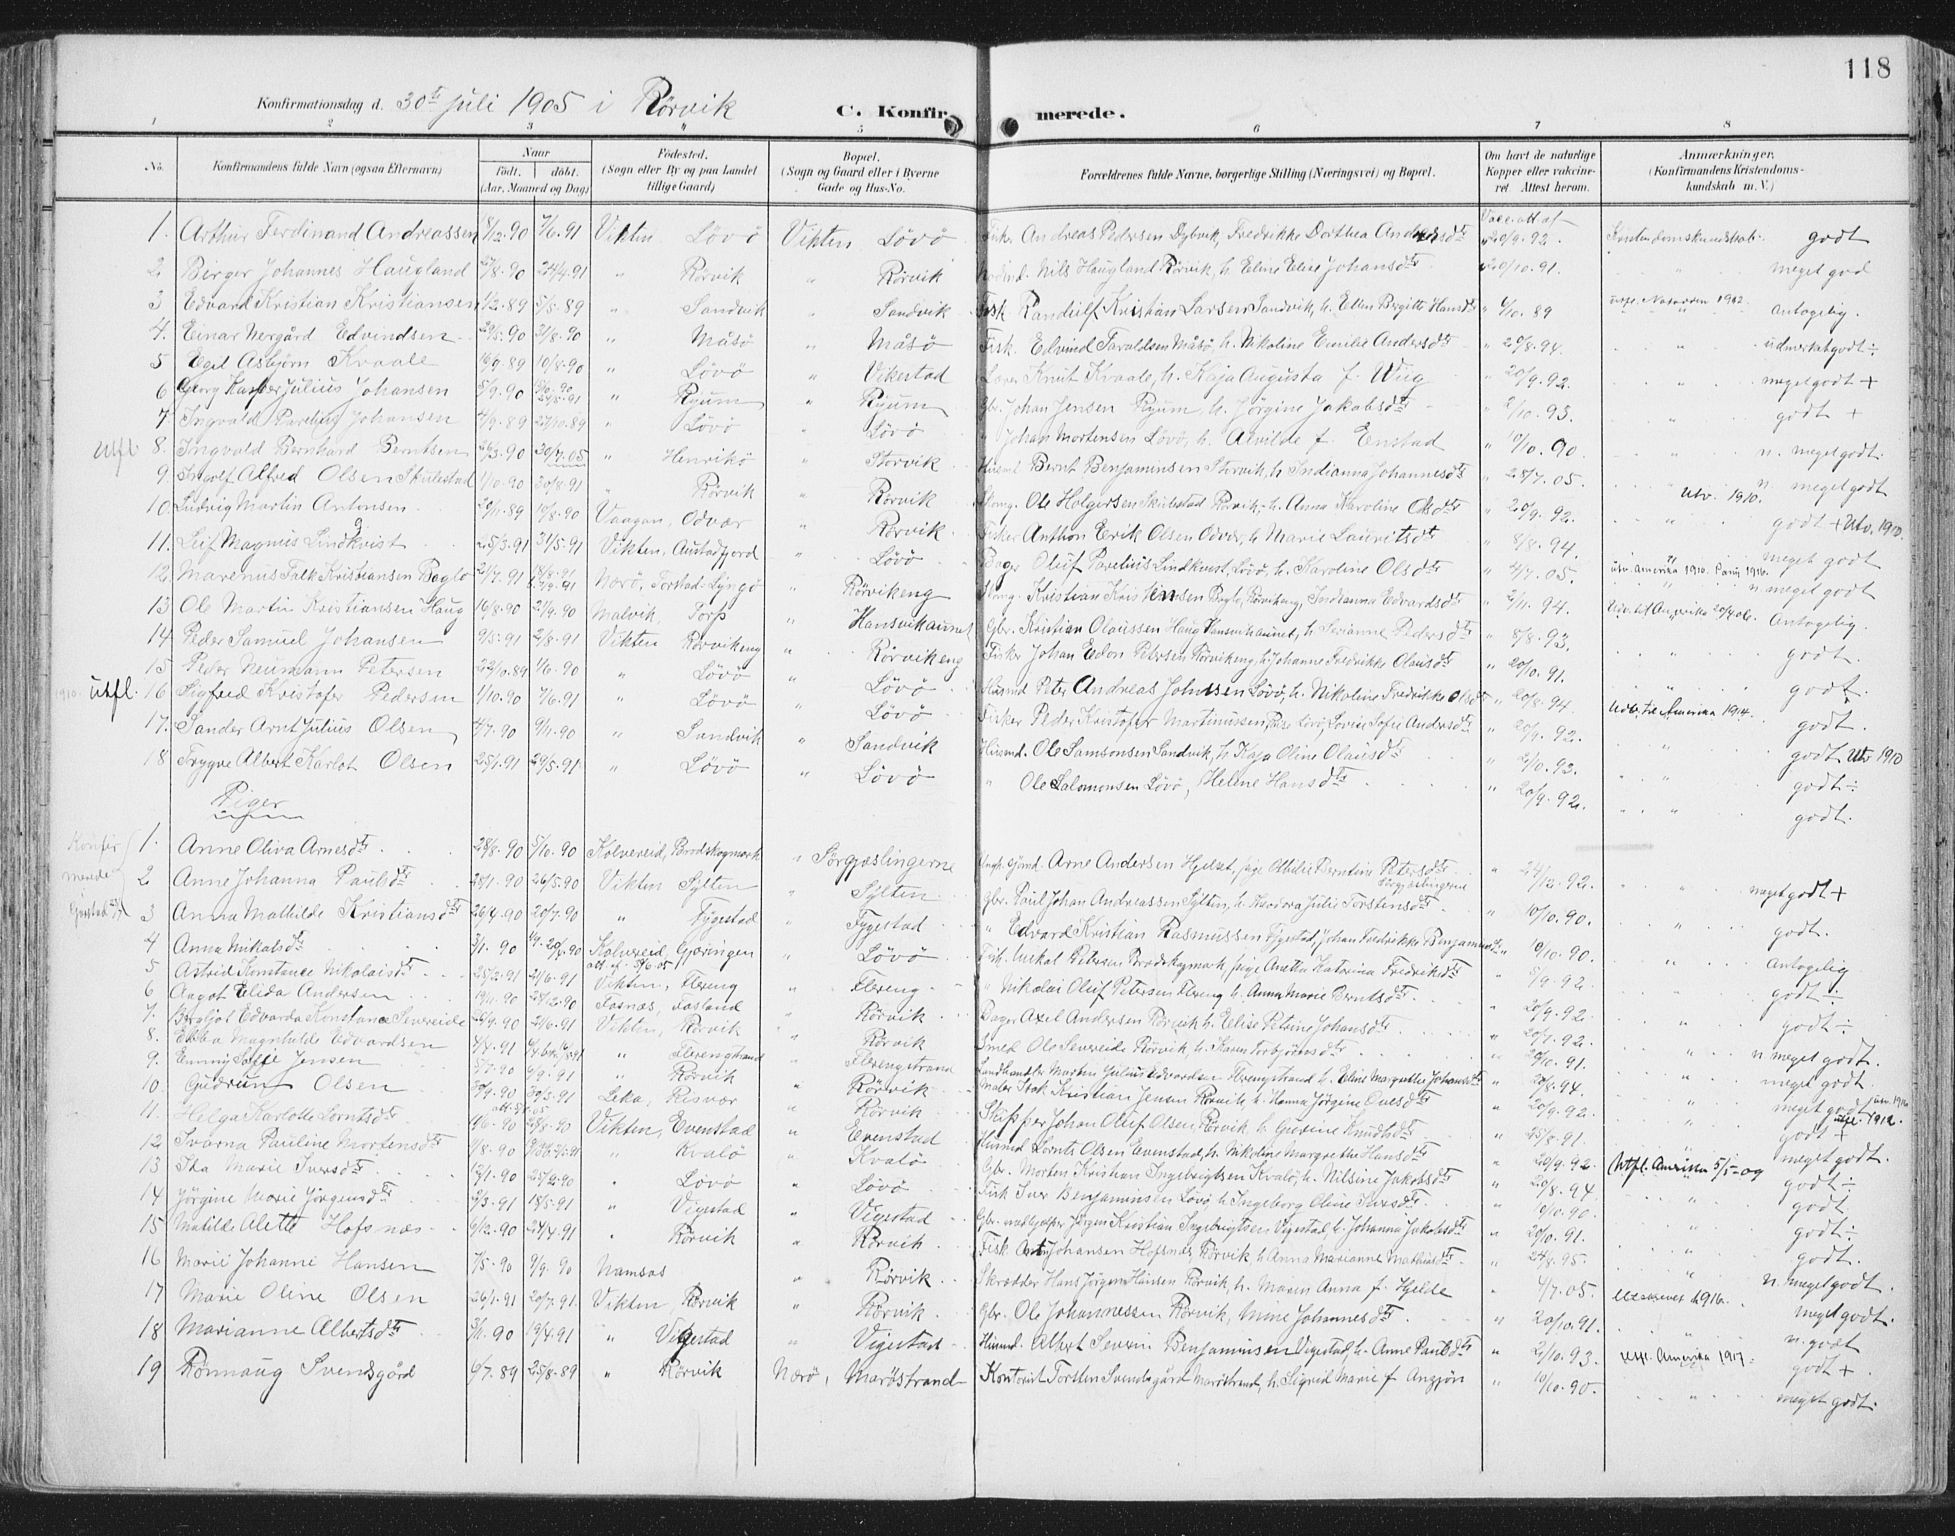 118
Konfirmationsdag d. 30te juli 1905 i Rörvik C. Konfirmerede.
1 2 3 4 5 6 7 8
No. Konfirmandens fulde Navn (ogsaa Efternavn) Naar født. døbt. (Aar, Maaned og Dag) Fødested. (Sogn eller By og paa Landet tillige Gaard) Bopæl. (Sogn og Gaard eller i Byerne Gade og Hus-No. Forældrenes fulde Navne, borgerlige Stilling (Næringsvei) og Bopæl. Om havt de naturlige Kopper eller vakcineret. Attest herom. Anmærkninger. (Konfirmandens Kristendomskundskab m. V.)
1. Arthur Ferdinand Andreassen 18/12.90 7/6.91 Vikten Lövö Vikten Lövö Fisker Andreas Pedersen Dybvik, Fredrikke Dorthea Andersdtr Vacc. att af 20/9.92. Kristendomskundskab godt
2 Birger Johannes Haugland 24/4.91 " Rörvik " Rörvik Nils Haugland Rörvik, h. Eline Elise Johansdtr " 20/10.91. meget god
3 Edvard Kristian Kristiansen 1/2.89 5/5.89 " Sandvik " Sandvik Fisk. Randulf Kristian Larsen Sandvik, h. Ellen Bergitte Hansdtr " 6/10.89 1902. antagelig.
4. Einar Nergård Edvindsen 29/5.90 31/8.90 " Måsö " Måsö Fisk. Edvind Taraldsen Måsö, h. Nikoline Emilie Andersdtr " 20/8.94. udmerket godt ÷
5 Egil Asbjørn Kvaale 16/9.89 10/8.90 " Lövö " Vikestad Lærer Knut Kvaale, h. Kaja Augusta f. Wug " 20/9.92. meget godt +
6 Georg Kasper Julius Johansen 5/9.90 24/5.91 " Ryum " Ryum Gbr. Johan Jensen Ryum, h. Jörgine Jakobsdtr " 2/10.95. godt +
7 Ingvald Parelius Johansen 4/9.89 27/10.89 " Lövö " Lövö " Johan Mortensen Lövö, h. Alvilde f. Enstad " 10/10.90. n. meget godt.
utfl. 8. Ingvold Bernhard Berntsen 26/3.90 30/7.05 " Henrikö " Storvik Husmd. Bernt Benjaminsen Storvik h. Indianna Johannesdtr " 28/7.05. n. meget godt
9. Ingolf Alfred Olsen Skilestad 1/10.90 30/8.91 " Rörvik " Rörvik Ole Holgersen Skilestad Rörvik, h. Anna Karoline Olsdtr " 20/9.92. utv. 1910. godt + Utv. 1910.
10. Ludvig Martin Antonsen 20/11.89 10/8.90 Vaagan, Odvær " Rörvik Fisker Anthon Erik Olsen Odvær, h. Marie Lauritsdtr " 8/8.94. meget godt
11. Leif Magnus Lindkvist 25/3.91 31/5.91 Vikten, Austadfjord " Lövö Bager Oluf Parelius Lindkvist, Lövö, h. Karoline Olsdtr " 4/7.05. utv. Amerika 1910. n. meget godt
12. Marenus Falk Kristiansen Boglo 21/7.91 Nærö, Torstad-Lyngö " Rörvikeng Kristian Kristensen Boglo, Rörvikeng, Indianna Edvardsdtr " 2/11.94. Udv. til Amerika 20/4 06. Antagelig.
13. Ole Martin Kristiansen Haug 16/8.90 21/9.90 Malvik, Torp " Hansvikaunet Gbr. Kristian Olaussen Haug Hansvikaunet, h. Serianne Pedersdtr " 8/8.93. godt.
14. Peder Samuel Johansen 9/5.91 2/8.91 Vikten Rörvikeng " Rörvikeng Fisker Johan Edon Petersen Rörvikeng, h. Johanne Fredrikke Olausdtr " 20/10.91. godt.
15 Peder Neumann Petersen 22/10.89 1/6.90 " Lövö " Lövö Husmd Peter Andreas Johnsen Lövö, h. Nikoline Fredrikke Olsdtr " 20/8.94. Udv. til Amerika 1914. godt.
1910. utfl. 16 Sigfred Kristofer Pedersen 1/10.90 7/6.91 " Lövö " Lövö Fisker Peder Kristofer Martinussen, Lövö, Lovise Sofie Andersdtr " 20/9.92. godt Utv 1910
17. Sander Arnt Julius Olsen 4/7.90 9/11.90 " Sandvik " Sandvik Husmd. Ole Samsonsen Sandvik, h. Kaja Oline Olausdtr " 2/10.93. godt ÷
18 Trygve Albert Karlot Olsen 25/1.91 29/5.91 " Lövö " Lövö " Ole Salomonsen Lövö, Helene Hansdtr " 20/9.92. godt.
Piger
Konfirmerede Gjerstad
1. Anne Oliva Arnesdtr 28/8.90 5/10.90 Kolvereid, Brodskogmark " Sörgjæslingerne Arne Andersen Hjelset, pige Petersdtr Sörgjæslingerne " 24/12.92. meget godt +
2 Anne Johanna Paulsdtr 28/1.90 26/5.90 Vikten Sylten " Sylten Gbr. Paul Johan Andreassen Sylten, h. Theodora Julie Torstensdtr " 10/10.90. godt.
3 Anna Mathilde Kristiansdtr 26/4.90 20/7.90 " Fygestad Fygestad " Edvard Kristian Rasmussen Fygestad, Johan Fredrikke Benjaminsdtr " 10/10.90. antagelig
4 Anna Nikalsdtr 3/1.90 Kolvereid, Gjæringen " Lövö Fisk. Petersen Brodskogmark, pige Anetha Katarina Fredriksdtr " 5/9.92 godt ÷
5 Astrid Konstance Nikolaisdtr 25/2.91 21/6.91 Vikten, Flereng " Flereng " Nikolai Oluf Petersen Flereng h. Anna Marie Berntsdtr " 20/9.92. godt ÷
6 Aagot Elida Andersen 19/11.90 28/12.90 Fosnæs, Fosland " Rörvik Bager Axel Andersen Rörvik h. Elise Petrine Johansdtr " 20/9.92. n. meget godt.
7. Bergljot Edvarda Konstance Severeide 26/9.90 21/6.91 Vikten, Rörvik " Rörvik Smed Ole Severeide Rörvik, h. Karen Torbjörnsdtr " 20/10.91. meget godt
8. Ebba Magnhilde Edvardsen 4/4.91 " Flerengstrand " Flerengstrand Landhandler Martin Julius Edvardsen Flerengstrand h. Eline Margrethe Johansdtr " 20/8.94. meget godt utv. 1916
9. Emmy Sofie Jensen 5/7.90 6/9.91 " Rörvik " Rörvik Maler Isak Kristian Jensen Rörvik, h. Hanna Jörgine Olesdtr " 20/9.92. godt + 1912.
10 Gudrun Olsen 30/9.90 30/5.91 Leka, Risvær " Rörvik Skipper Johan Oluf Olsen Rörvik, h. Gurine Knudtsdtr " 25/8.91. meget godt.
11. Helga Karlotte Lorntsdtr 11/6.90 Vikten, Evenstad " Evenstad Husmd Lornts Olsen Evenstad, h. Nikoline Margrethe Hansdtr " 20/9.92. Utfl. Amerika 5/5-09 godt ÷
12 Svarna Pauline Mortensdtr 1/8.90 " Kvalö " Kvalö Gbr. Morten Kristian Ingebrigtsen Kvalö, h. Nilsine Jakobsdtr " 20/8.94. godt
13 Ida Marie Iversdtr 12/1.90 25/2.90 " Lövö " Lövö Fisk Iver Benjaminsen Lövö, h. Ingeborg Oline Iversdtr " 10/10.90. godt ÷
14 Jörgine Marie Jörgensdtr 2/3.91 18/5.91 " Vigestad " Vigestad Gbr. Jörgen Kristian Ingebrigtsen Vigestad, h. Johanna Jakobsdtr " 20/10.91. godt.
15 Matilde Alette Hofsnæs 6/12.90 24/4.91 " Rörvik " Rörvik Fisk. Johansen Hofsnæs, Rörvik, h. Anna Marianne Mathiasdtr " 24/8.95. n. meget godt.
16 Marie Johanne Hansen 7/5.90 9/9.90 Namsos " Rörvik Skrædder Hans Jörgen Hansen Rörvik, h. Maren Anna f. Hjelde " 4/7.05. 1916. meget godt.
17 Marie Oline Olsen 26/1.91 20/7.91 Vikten, Rörvik " Rörvik Gbr. Ole Johannessen Rörvik, Mine Johannesdtr " 20/10.91. n. godt
18 Marianne Albertsdtr 5/11.90 19/4.91 " Vigestad " Vigestad Husmd. Albert Severin Benjaminsen Vigestad, h. Anne Paulsdtr " 2/10.93. utfl. Amerika 1917. godt +
19 Rönnaug Svendsgård 6/7.89 25/8.89 " Rörvik Nærö, Maröstrand Kontorist Torsten Svendsgård Maröstrand, h. Sigrid Marie f. Angjön " 10/10.90. meget godt.